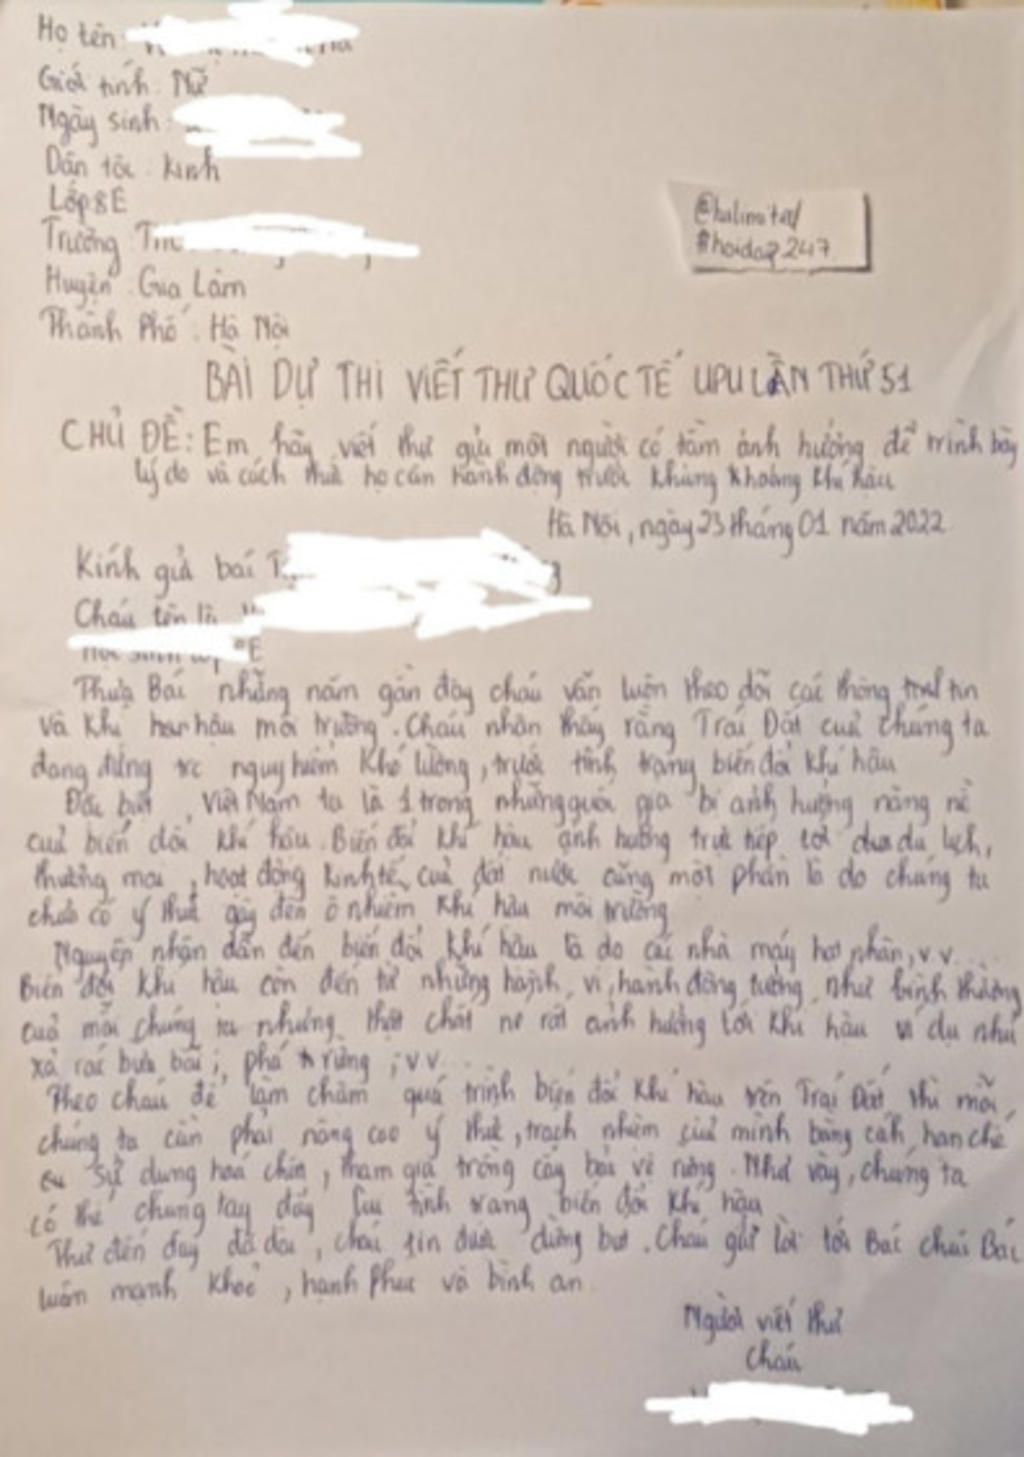 Họ tên:
Giới tính: Nữ
Ngày sinh:
Dân tộc: Kinh
Lớp 8E
Trường
Huyện: Gia Lâm
Thành Phố: Hà Nội
@halinotal
#hoidap247
BÀI DỰ THI VIẾT THƯ QUỐC TẾ UPU LẦN THỨ 51
CHỦ ĐỀ: Em hãy viết thư gửi một người có tầm ảnh hưởng để trình bày
lý do và cách thức họ cần hành động trước khủng khoảng khí hậu
Hà Nội, ngày 23 tháng 01 năm 2022
Kính gửi bác
Cháu tên là
Thưa Bác những năm gần đây cháu vẫn luôn theo dõi các thông tin
và khí hậu môi trường. Cháu nhận thấy rằng Trái Đất của chúng ta
đang đứng trc nguy hiểm khó lường, trước tình trạng biến đổi khí hậu
Đặc biệt, Việt Nam ta là 1 trong những quốc gia bị ảnh hưởng nặng nề
của biến đổi khí hậu. Biến đổi khí hậu ảnh hưởng trực tiếp tới du lịch,
thương mại, hoạt động kinh tế của đất nước cũng một phần là do chúng ta
chưa có ý thức gây đến ô nhiễm khí hậu môi trường
Nguyên nhân dẫn đến biến đổi khí hậu là do các nhà máy, v.v...
Biến đổi khí hậu còn đến từ những hành vi, hành động tưởng như bình thường
của mỗi chúng ta nhưng thật chất nó rất ảnh hưởng tới khí hậu ví dụ như
xả rác bừa bãi; phá rừng; v.v...
Theo cháu để làm chậm quá trình biến đổi khí hậu trên Trái Đất thì mỗi
chúng ta cần phải nâng cao ý thức, trách nhiệm của mình bằng cách hạn chế
sử dụng hoá chất, tham gia trồng cây bảo vệ rừng. Như vậy, chúng ta
có thể chung tay đẩy lùi tình trạng biến đổi khí hậu
Thư đến đây đã dài, cháu xin được dừng bút. Cháu gửi lời tới Bác chúc Bác
luôn mạnh khoẻ, hạnh phúc và bình an
Người viết thư
Cháu